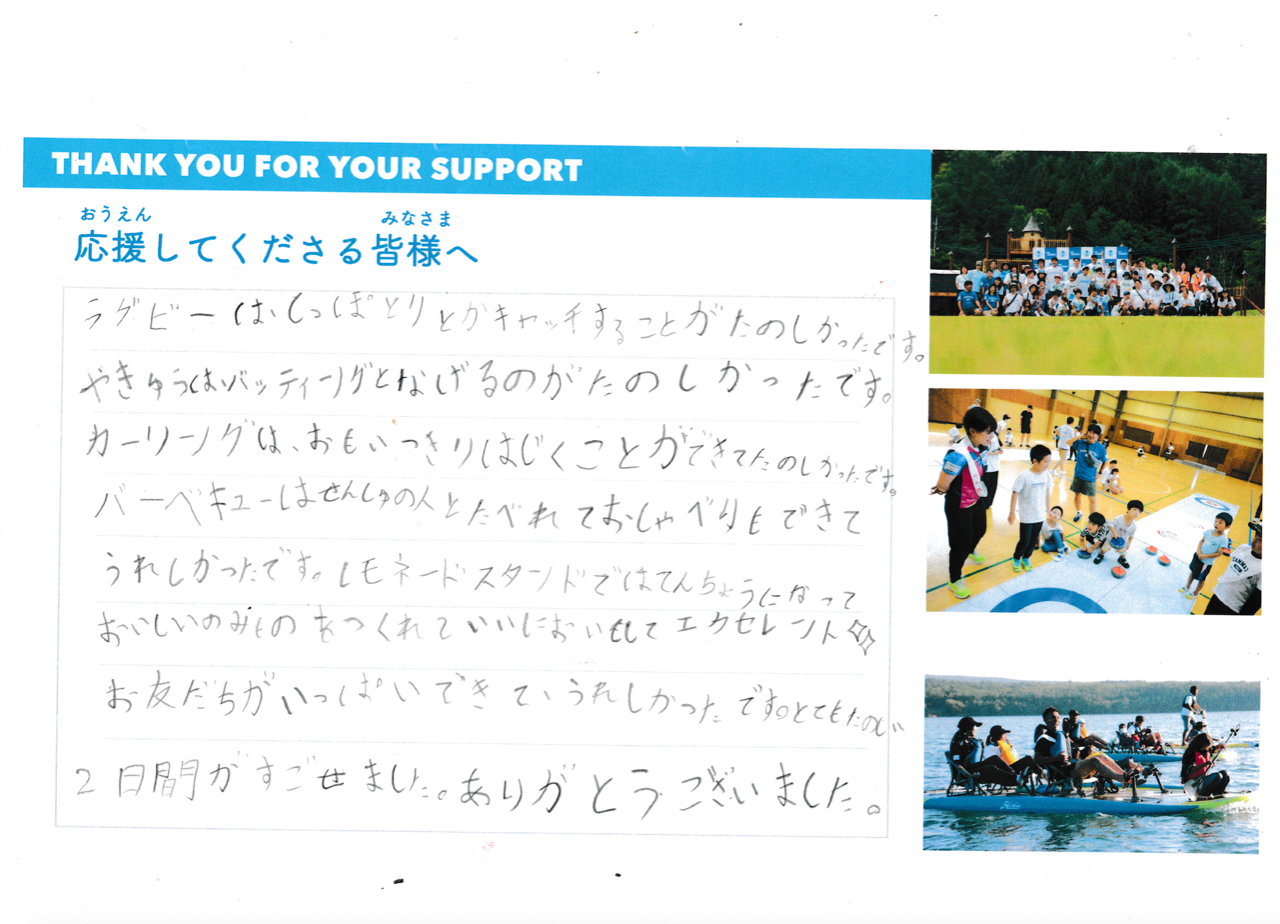 THANK YOU FOR YOUR SUPPORT
おうえん みなさま
応援してくださる皆様へ
ラグビーは、しっぽとりとかキャッチすることがたのしかったです。
やきゅうはバッティングとなげるのがたのしかったです。
カーリングは、おもいっきりはじくことができてたのしかったです。
バーベキューはせんしゅの人とたべれておしゃべりもできて
うれしかったです。レモネードスタンドではてんちょうになって
おいしいのみものをつくれていいにおいもしてエクセレント
お友だちがいっぱいできて、うれしかったです。とてもたのしい
2日間がすごせました。ありがとうございました。